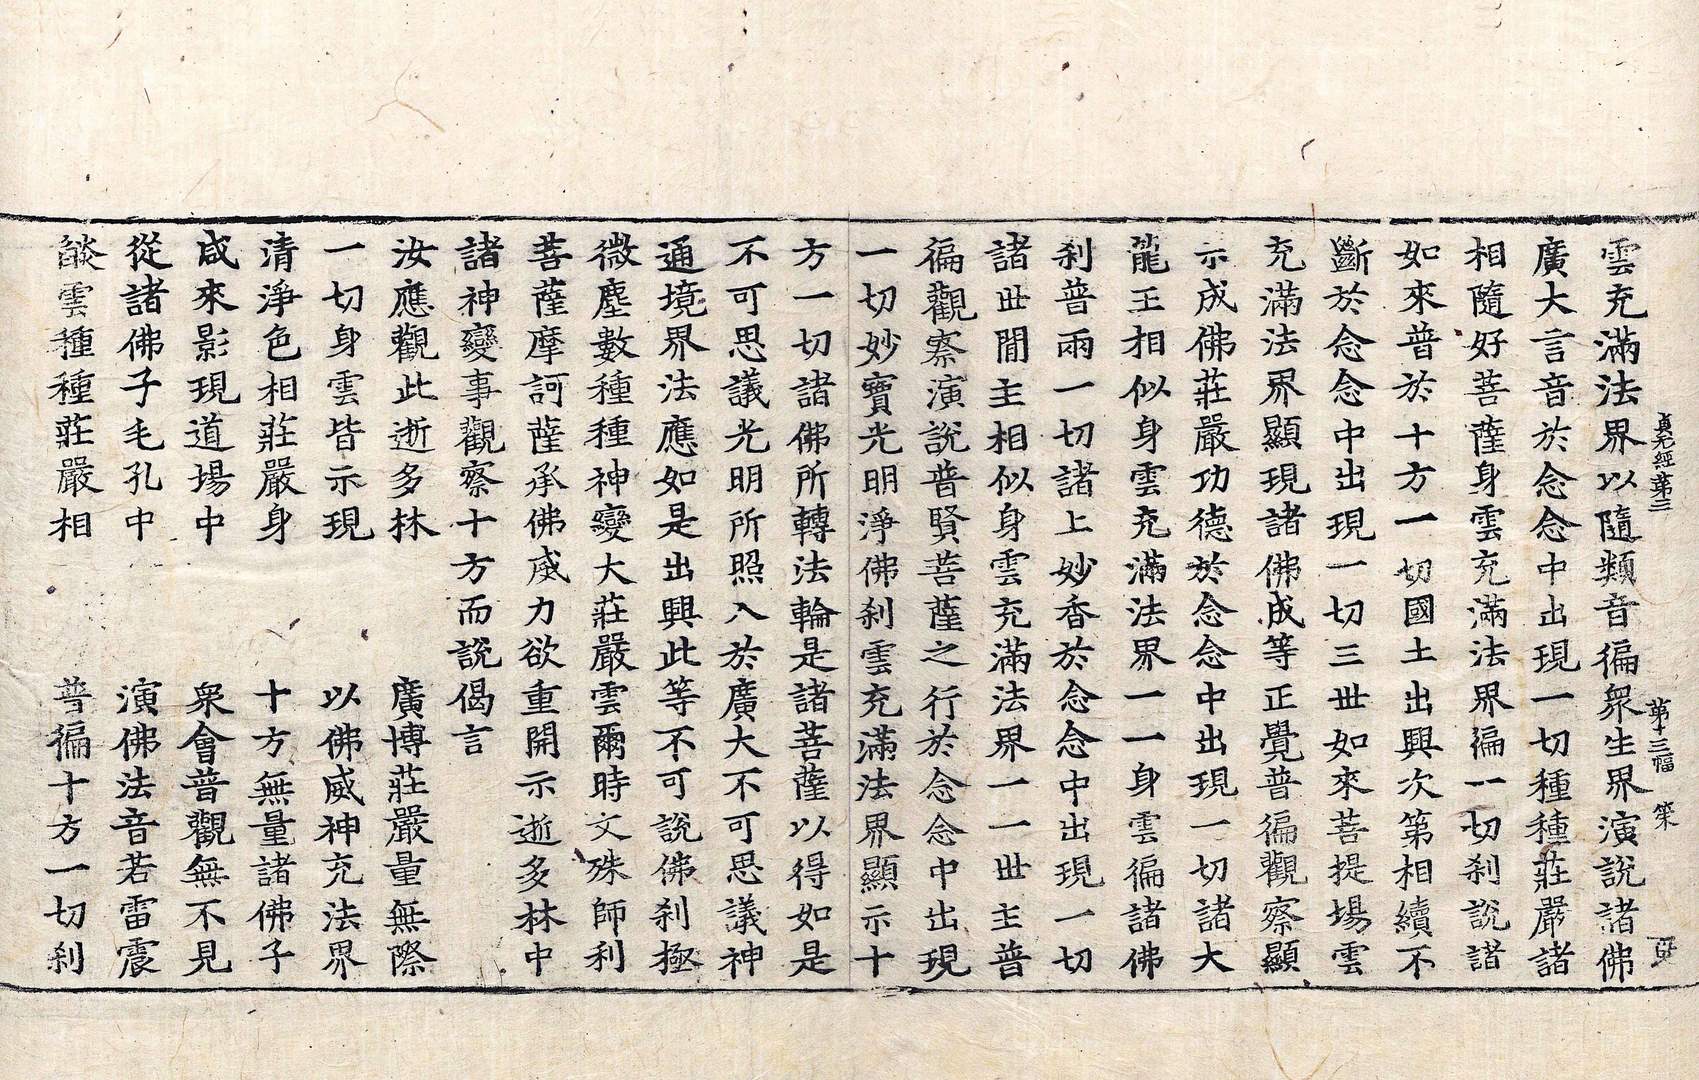 貞元經第三 第十三幅 策 更
雲充滿法界以隨類音徧衆生界演說諸佛
廣大言音於念念中出現一切種種莊嚴諸
相隨好菩薩身雲充滿法界徧一切刹說諸
如來普於十方一切國土出興次第相續不
斷於念念中出現一切三世如來菩提場雲
充滿法界顯現諸佛成等正覺普徧觀察顯
示成佛莊嚴功德於念念中出現一切諸大
龍王相似身雲充滿法界一一身雲徧諸佛
刹普雨一切諸上妙香於念念中出現一切
諸世間主相似身雲充滿法界一一世主普
徧觀察演說普賢菩薩之行於念念中出現
一切妙寶光明淨佛刹雲充滿法界顯示十
方一切諸佛所轉法輪是諸菩薩以得如是
不可思議光明所照入於廣大不可思議神
通境界法應如是出興此等不可說佛刹極
微塵數種種神變大莊嚴雲爾時文殊師利
菩薩摩訶薩承佛威力欲重開示逝多林中
諸神變事觀察十方而說偈言
汝應觀此逝多林 廣博莊嚴量無際
一切身雲皆示現 以佛威神充法界
清淨色相莊嚴身 十方無量諸佛子
咸來影現道場中 衆會普觀無不見
從諸佛子毛孔中 演佛法音若雷震
燄雲種種莊嚴相 普徧十方一切刹